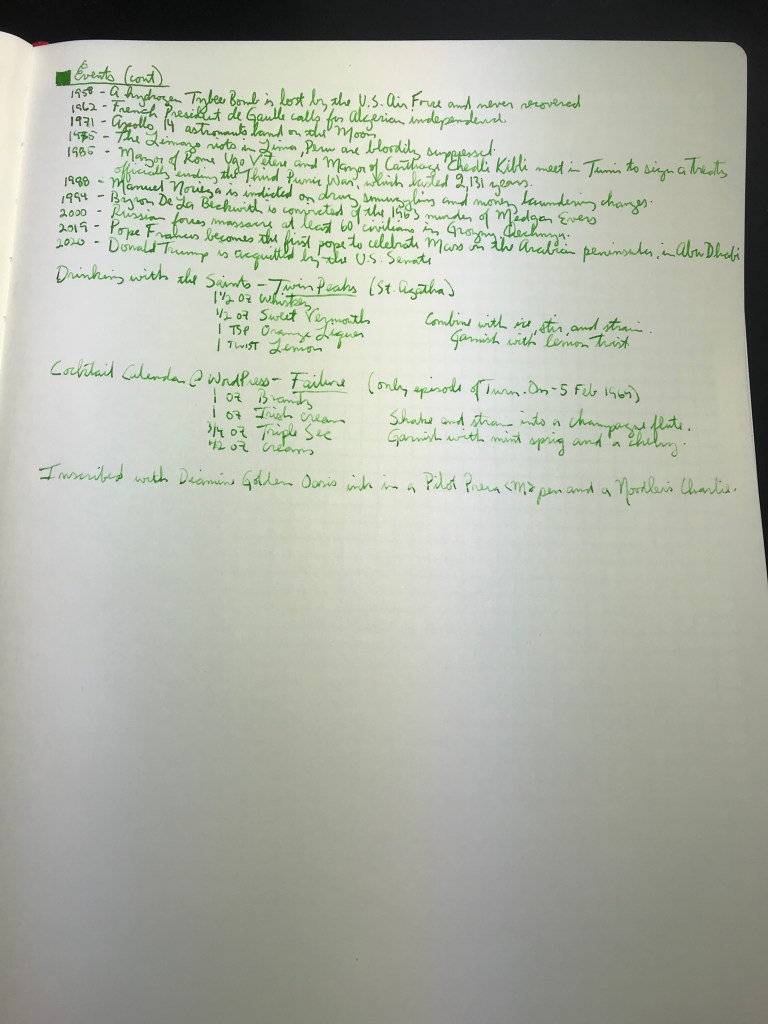 Events (cont)
1958 - A hydrogen Tybee Bomb is lost by the U.S. Air Force and never recovered
1962 - French President de Gaulle calls for Algerian independence.
1971 - Apollo 14 astronauts land on the Moon
1975 - The Limazo riots in Lima, Peru are bloodily suppressed.
1985 - Mayor of Rome Ugo Vetere and Mayor of Carthage Chedli Klibi meet in Tunis to sign a treaty
officially ending the Third Punic War, which lasted 2,131 years.
1988 - Manuel Noriega is indicted on drug smuggling and money laundering charges.
1994 - Byron De La Beckwith is convicted of the 1963 murder of Medgar Evers
2000 - Russian forces massacre at least 60 civilians in Grozny, Chechnya.
2019 - Pope Francis becomes the first pope to celebrate Mass in the Arabian peninsula, in Abu Dhabi
2020 - Donald Trump is acquitted by the U.S. Senate
Drinking with the Saints - Twin Peaks (St. Agatha)
1 1/2 oz Whiskey
1/2 oz Sweet Vermouth Combine with ice, stir, and strain.
1 TSP Orange Liqueur Garnish with lemon twist
1 Twist Lemon
Cocktail Calendar @ WordPress - Failure (only episode of Turn-On - 5 Feb 1969)
1 oz Brandy
1 oz Irish Cream Shake and strain into a champagne flute.
3/4 oz Triple Sec Garnish with mint sprig and a cherry.
1/2 oz Cream
Inscribed with Diamine Golden Oasis ink in a Pilot Prera <M> pen and a Noodler's Charlie.